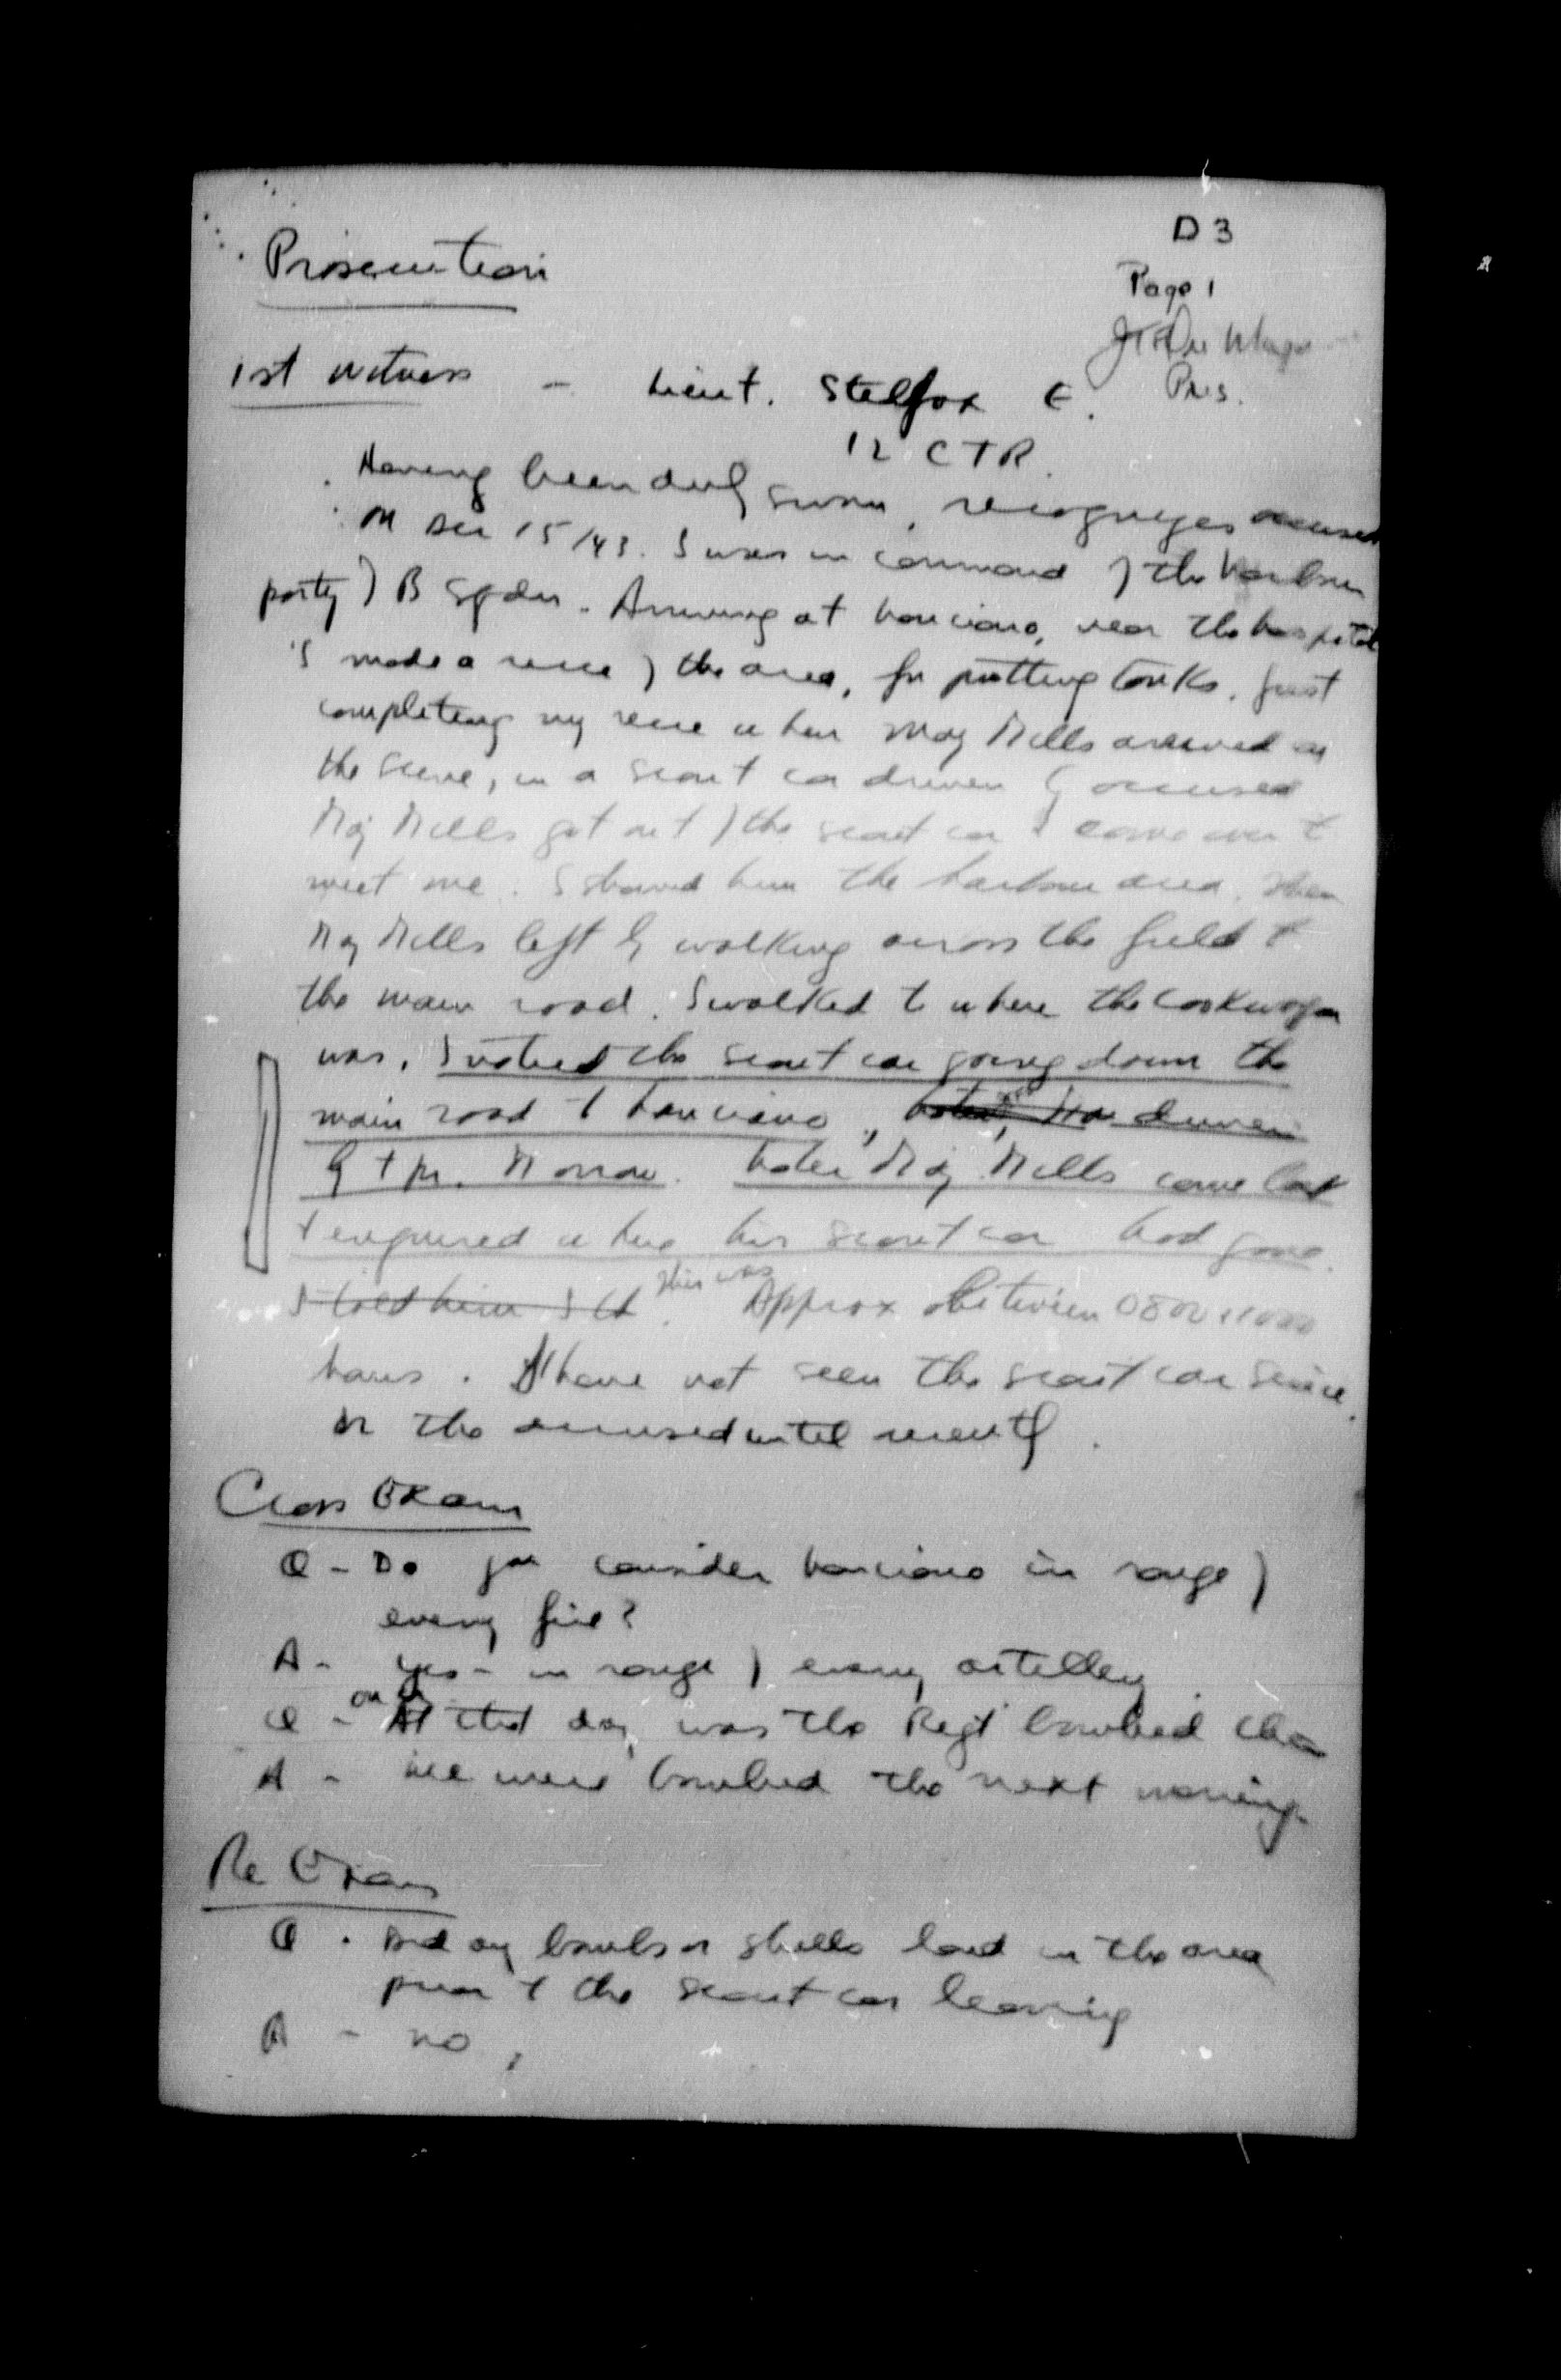 D 3
Prosecution
Page 1
Pres.
1st Witness - Lieut. Stelfox E.
12 CTR.
Having been duly sworn, recognizes accused
On Dec 15/43. I was in command of the harbour
party of B Sqdn. Arriving at Lanciano, near the hospital
I made a recce of the area, for putting tanks. Just
completing my recce when Maj Mills arrived on
the scene, in a scout car driven by accused
Maj Mills got out of the scout car & came over to
meet me. I showed him the harbour area. Then
Maj Mills left by walking across the field to
the main road. I walked to where the cookwagon
was. I noticed the scout car going down the
main road to Lanciano, driven
by Tpr. Morrow. Later Maj. Mills came back
& enquired where his scout car had gone.
I told him I this was Approx between 0800 & 1000
hours. I have not seen the scout car since.
or the accused until recently.
Cross Exam
Q - Do you consider Lanciano in range of
enemy fire?
A - Yes - in range of enemy artillery
Q - on At that day was the Regt bombed
A - We were bombed the next morning.
Re Exam
Q - Did any bombs or shells land in the area
prior to the scout car leaving
A - no,